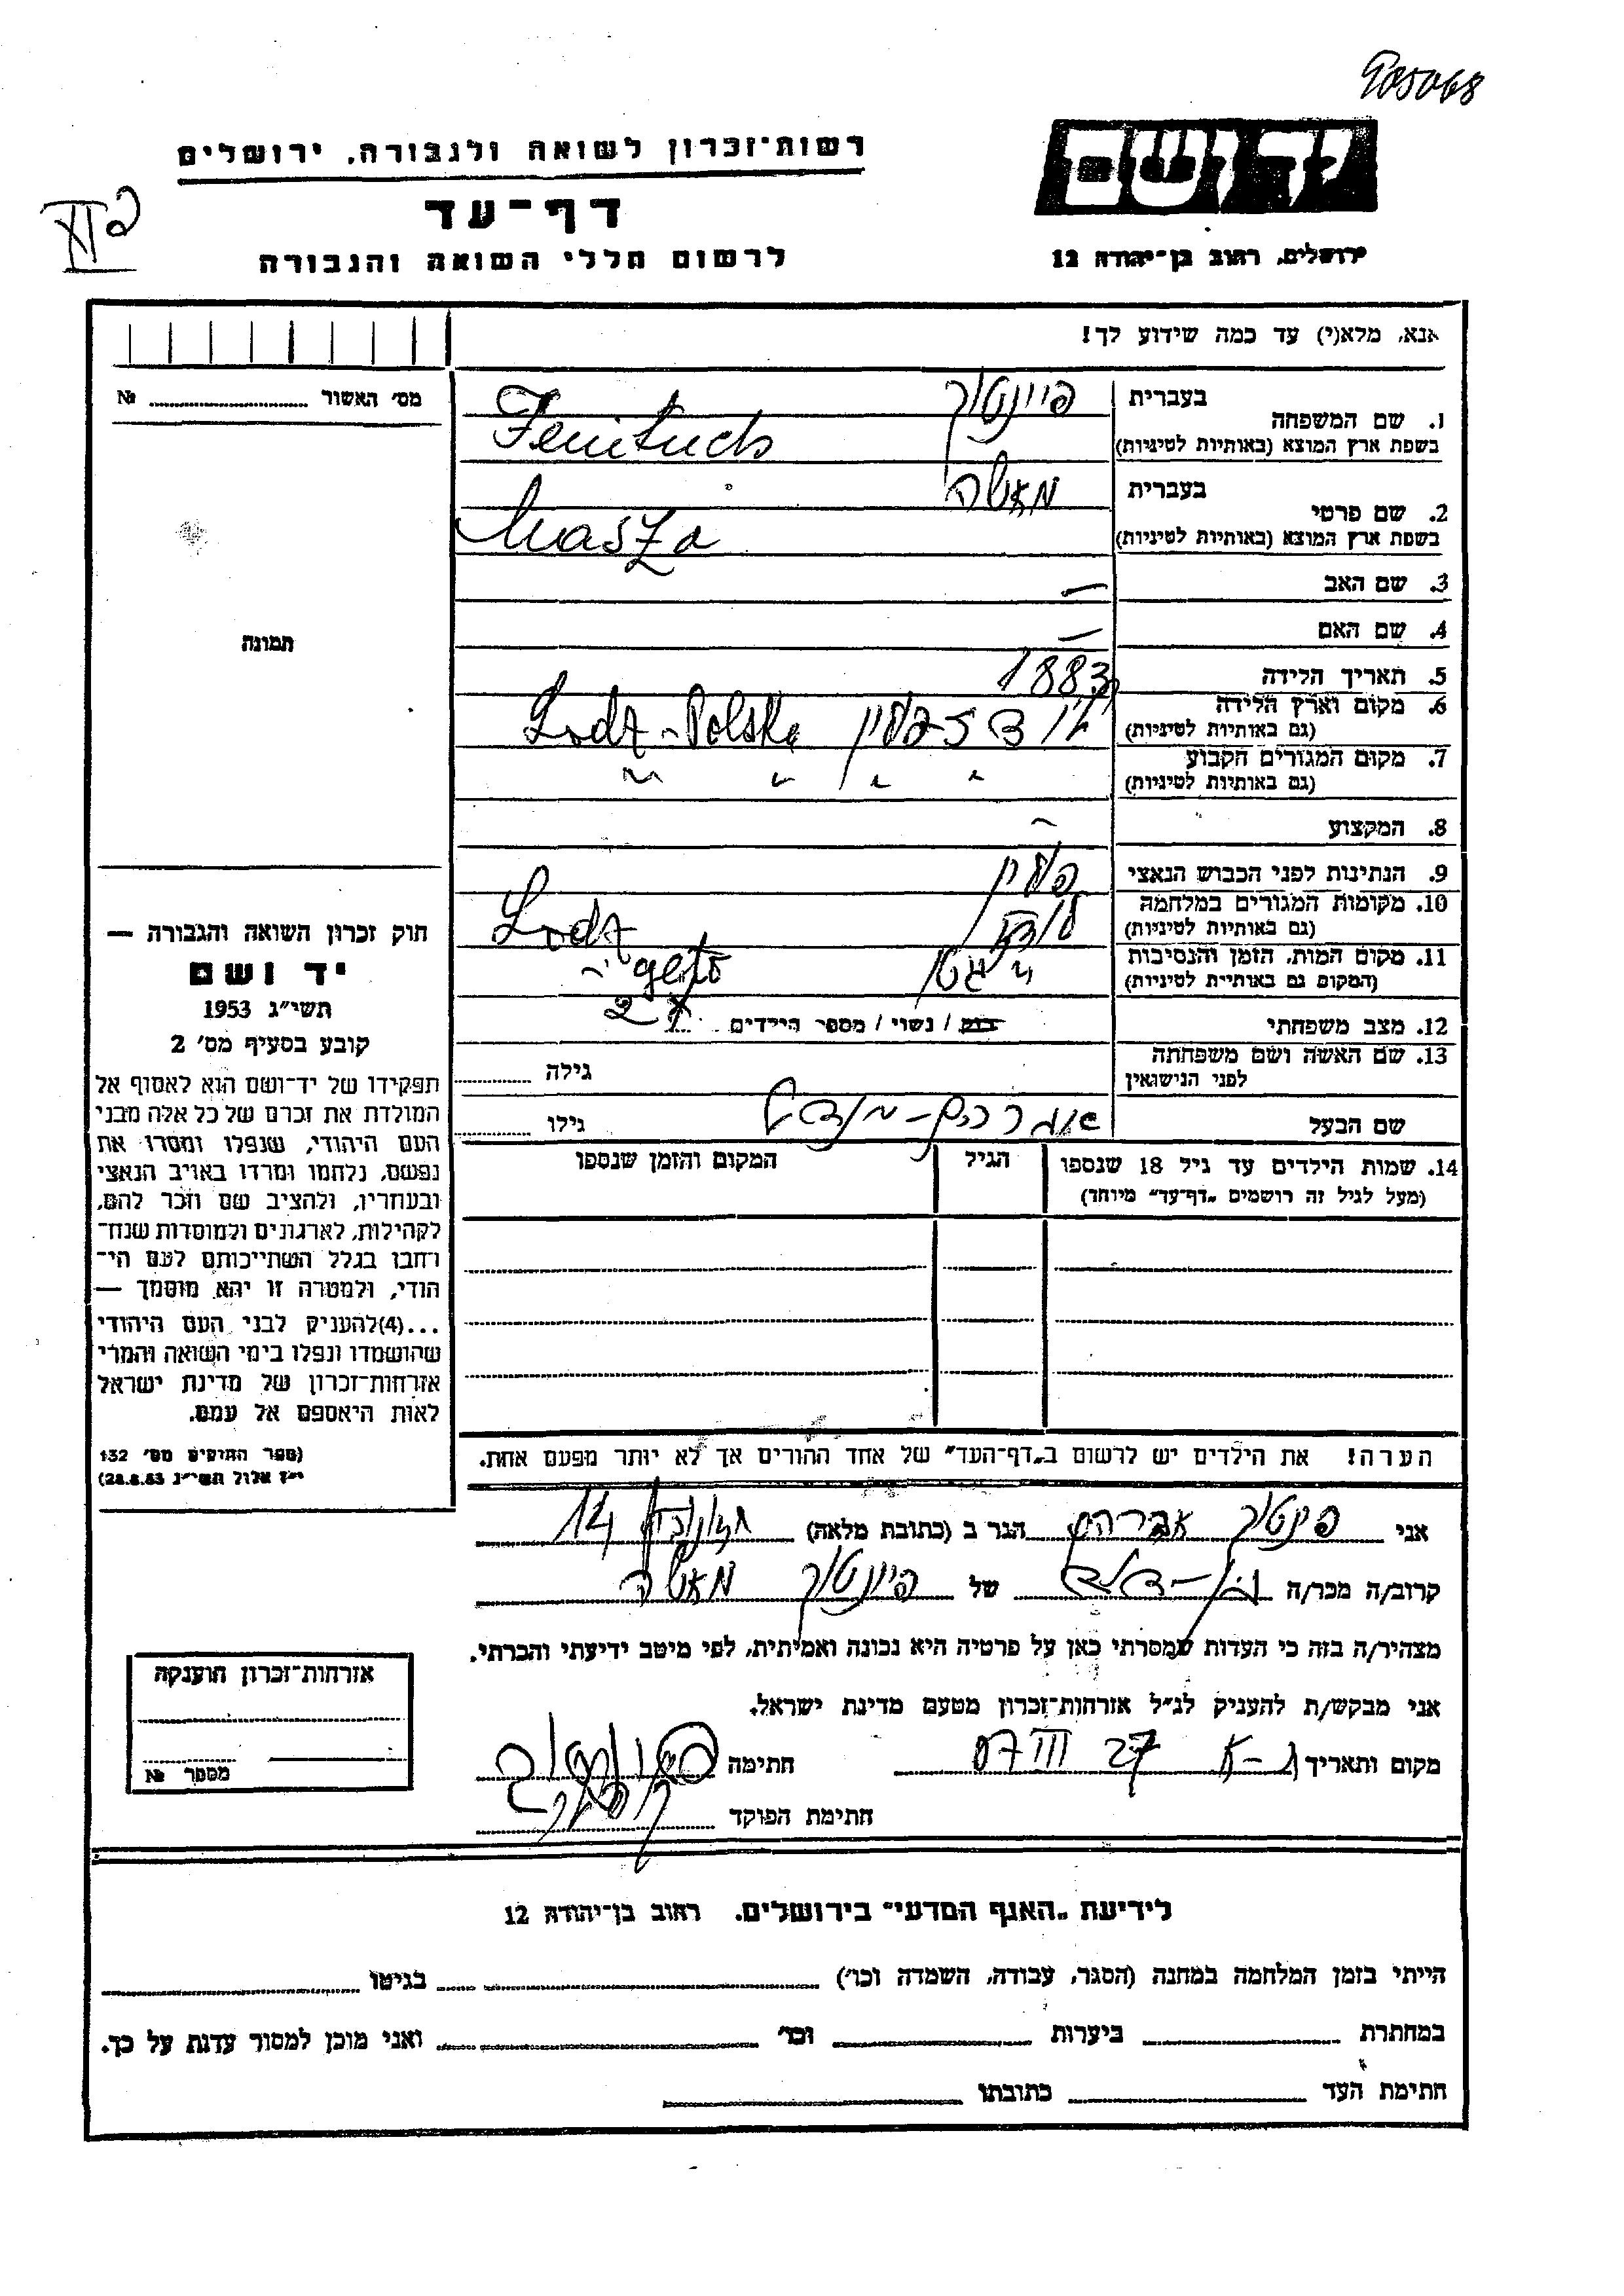 905068
יד ושם
רשות־זכרון לשואה ולגבורה, ירושלים
דף־עד
לרשום חללי השואה והגבורה
ירושלים, רחוב בן־יהודה 12
אנא, מלא(י) עד כמה שידוע לך!
מס׳ האשור № 
תמונה
חוק זכרון השואה והגבורה —
יד ושם
תשי״ג 1953
קובע בסעיף מס׳ 2
תפקידו של יד־ושם הוא לאסוף אל
המולדת את זכרם של כל אלה מבני
העם היהודי, שנפלו ומסרו את
נפשם, נלחמו ומרדו באויב הנאצי
ובעוזריו, ולהציב שם וזכר להם,
לקהילות, לארגונים ולמוסדות שנח־
רחבו בגלל השתייכותם לעם הי־
הודי, ולמטרה זו יהא מוסמך —
...(4)להעניק לבני העם היהודי
שהושמדו ונפלו בימי השואה והמרי
אזרחות־זכרון של מדינת ישראל
לאות היאספם אל עמם.
(ספר החוקים מס׳ 132
י״ז אלול תשי״ג 28.8.53)
1. שם המשפחה בעברית פיינטוך
בשפת ארץ המוצא (באותיות לטיניות) Feintuch
2. שם פרטי בעברית מאשה
בשפת ארץ המוצא (באותיות לטיניות) Masza
3. שם האב —
4. שם האם —
5. תאריך הלידה 1883
6. מקום וארץ הלידה (גם באותיות לטיניות) לודז פולין Lodz - Polska
7. מקום המגורים הקבוע (גם באותיות לטיניות) " " " "
8. המקצוע —
9. הנתינות לפני הכבוש הנאצי פולין
10. מקומות המגורים במלחמה (גם באותיות לטיניות) לודז Lodz
11. מקום המות, הזמן והנסיבות (המקום גם באותיות לטיניות) גטו geto
12. מצב משפחתי רווק / נשוי / מספר הילדים
13. שם האשה ושם משפחתה לפני הנישואין גילה
שם הבעל אברהם - מנדל גילו
14. שמות הילדים עד גיל 18 שנספו הגיל המקום והזמן שנספו
(מעל לגיל זה רושמים „דף־עד״ מיוחד)
הערה! את הילדים יש לרשום ב„דף־העד״ של אחד ההורים אך לא יותר מפעם אחת.
אני פינטוך אברהם הגר ב (כתובת מלאה) 14
קרוב/ה מכר/ה של פיינטוך מאשה
מצהיר/ה בזה כי העדות שמסרתי כאן על פרטיה היא נכונה ואמיתית, לפי מיטב ידיעתי והכרתי.
אני מבקש/ת להעניק לנ״ל אזרחות־זכרון מטעם מדינת ישראל.
מקום ותאריך ת-א 27 III 57 חתימה
חתימת הפוקד
אזרחות־זכרון הוענקה
מספר №
לידיעת „האגף המדעי״ בירושלים, רחוב בן־יהודה 12
הייתי בזמן המלחמה במחנה (הסגר, עבודה, השמדה וכו׳) בגיטו
במחתרת ביערות וכו׳ ואני מוכן למסור עדות על כך.
חתימת העד כתובתו